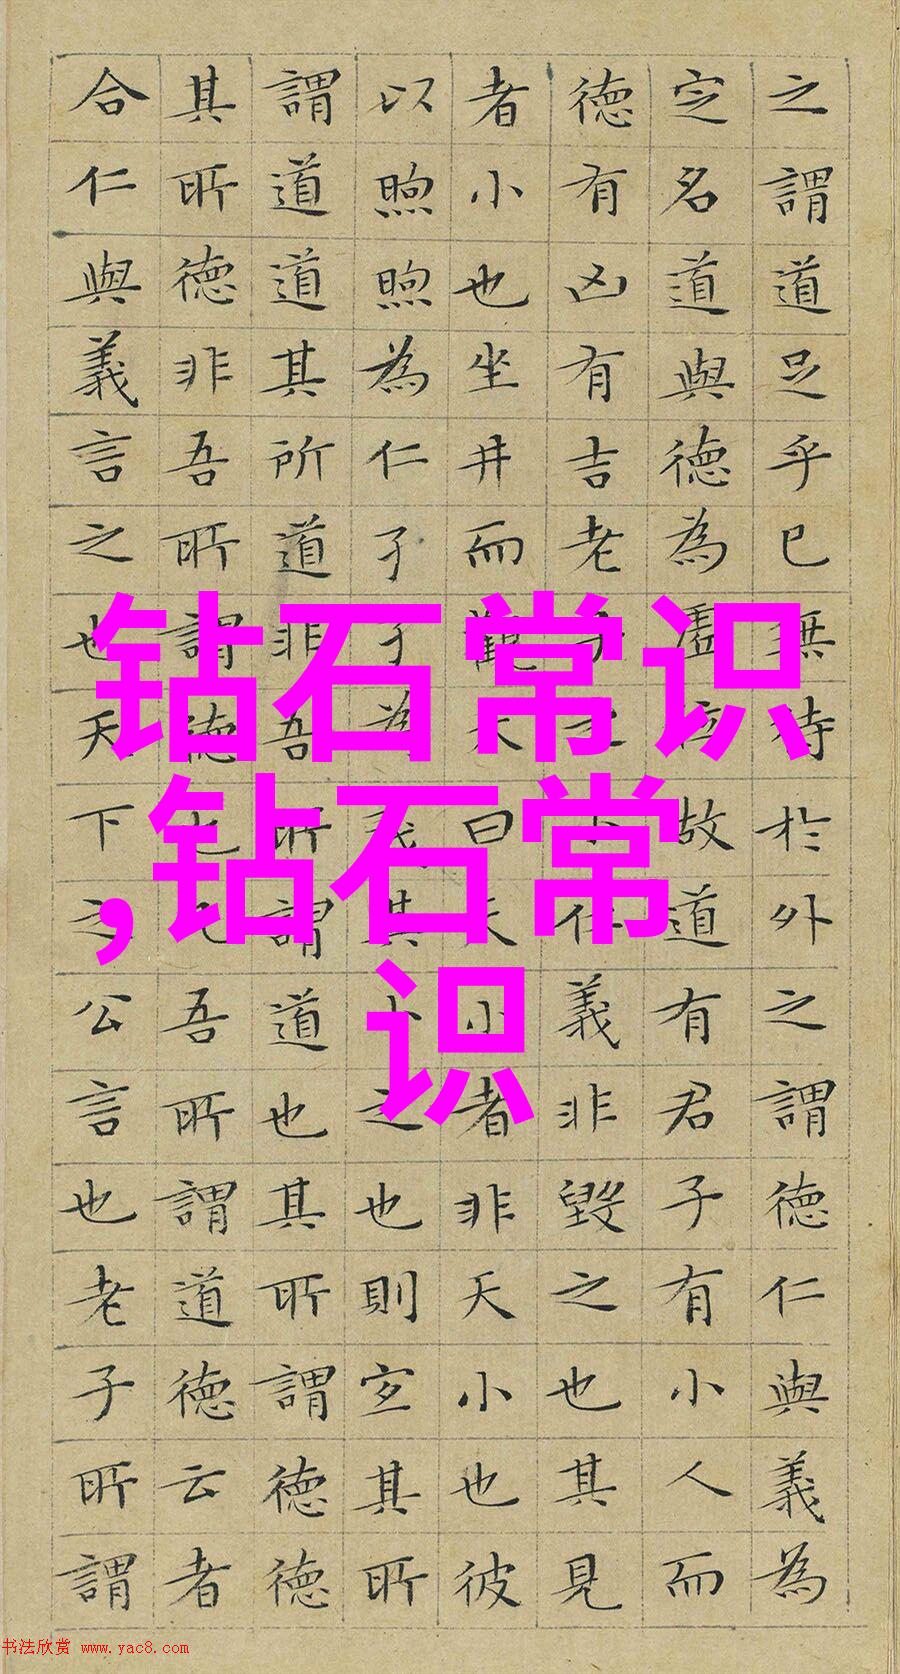 之謂道足乎已無待於外之謂德仁與義為
定名道與德為虛位故道有君子有小人而
德有凶有吉老子之小仁義非毀之也其見
者小也坐井而觀天曰天小者非天小也彼
以煦煦為仁孑孑為義其小之也則宜其所
謂道道其所道非吾所謂道也其所謂德德
其所德非吾所謂德也凡吾所謂道德云者
合仁與義言之也天下之公言也老子所謂
钻石常识
,钻石常
识
书法欣赏 www.yac8.com